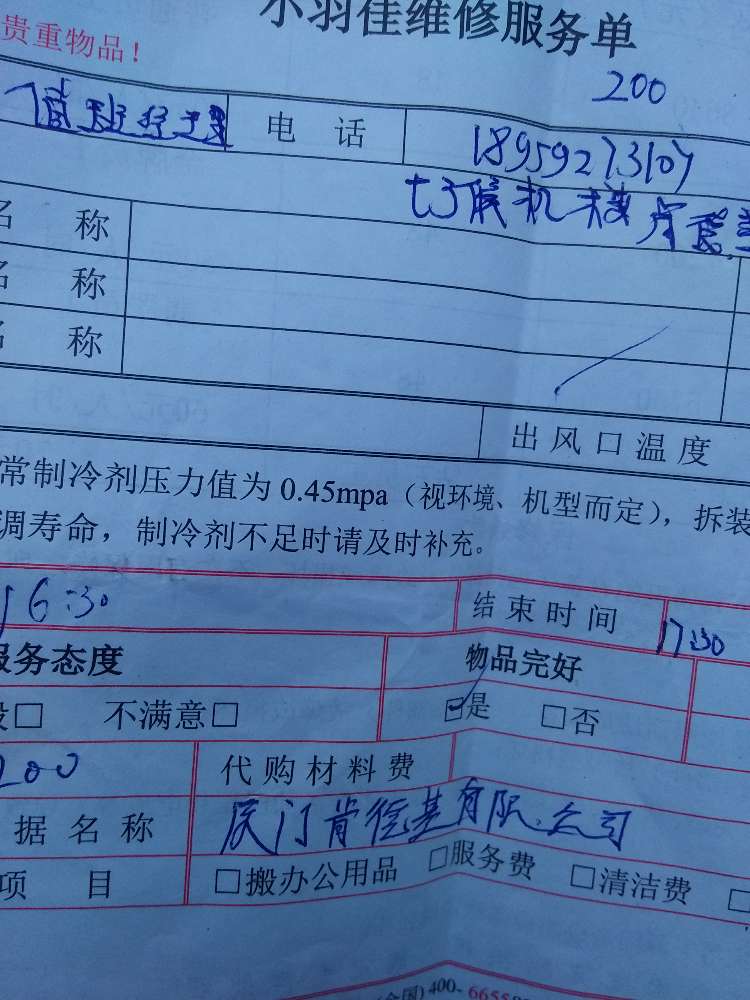 小羽佳维修服务单
贵重物品！
200
值班经理 电话 18959273107
名称
名称
名称
出风口温度
常制冷剂压力值为 0.45mpa（视环境、机型而定），拆装
调寿命，制冷剂不足时请及时补充。
16:30 结束时间 17:30
服务态度 物品完好
般□ 不满意□ ☑是 □否
200 代购材料费
据名称 厦门肯德基有限公司
项目 □搬办公用品 □服务费 □清洁费 □
(全国) 400-6655